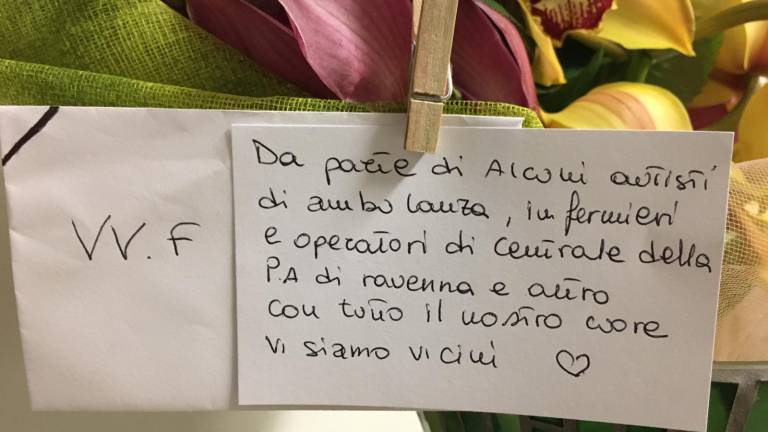 VV.F
Da parte di Alcuni autisti
di ambulanza, infermieri
e operatori di Centrale della
P.A di ravenna e altro
con tutto il nostro cuore
vi siamo vicini ♡